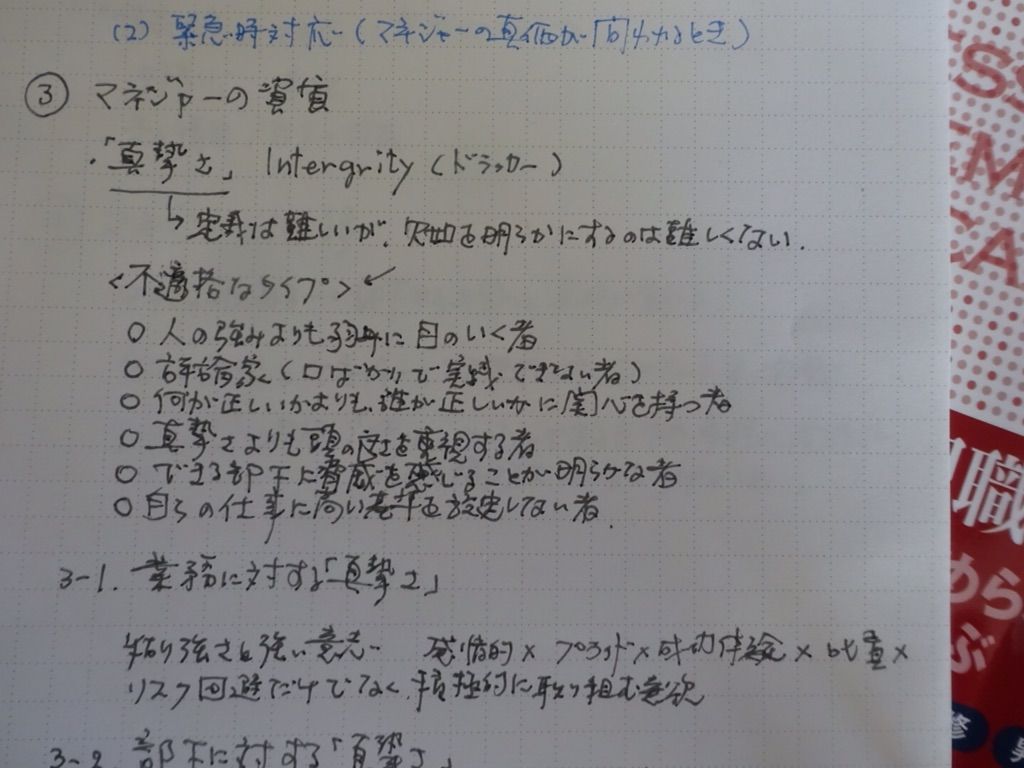 (2) 緊急時対応(マネジャーの真価が問われるとき)
③ マネジャーの資質
・「真摯さ」 Intergrity (ドラッカー)
↳ 定義は難しいが、欠如を明らかにするのは難しくない。
<不適格なタイプ>
○ 人の強みよりも弱みに目のいく者
○ 評論家(口ばかりで実践できない者)
○ 何が正しいかよりも、誰が正しいかに関心を持つ者
○ 真摯さよりも頭の良さを重視する者
○ できる部下に脅威を感じることが明らかな者
○ 自らの仕事に高い基準を設定しない者
3-1. 業務に対する「真摯さ」
粘り強さと強い意志 感情的× プライド× 成功体験×
リスク回避だけでなく、積極的に取り組む意欲
3-2 部下に対する「真摯さ」
SS
EM
CA
職
めら
ぶ
修